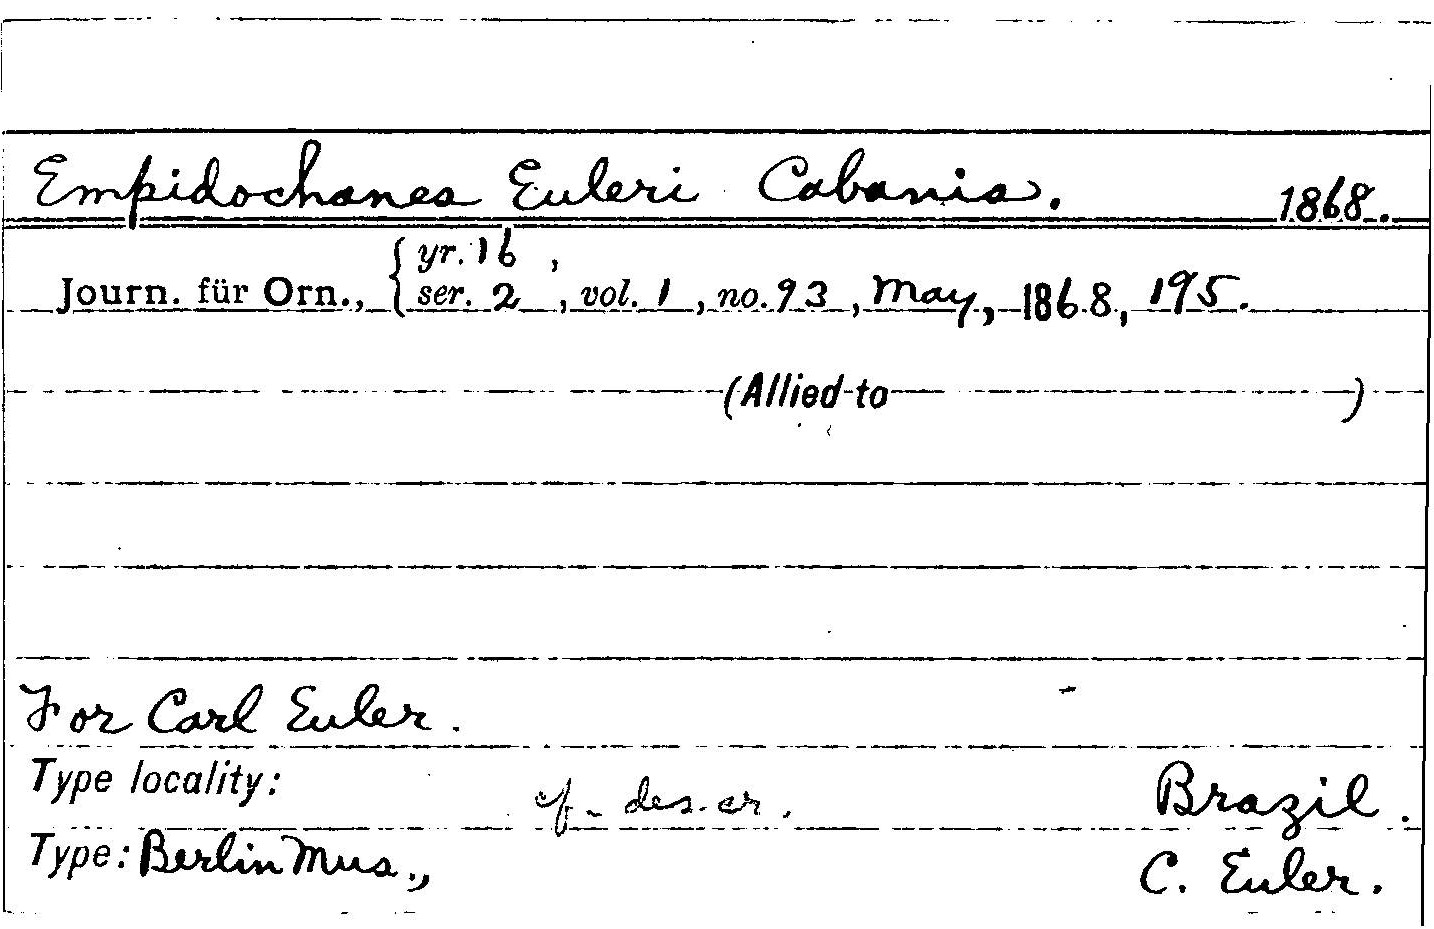 Empidochanes Euleri Cabanis. 1868.
yr. 16,
Journ. für Orn., ser. 2, vol. 1, no. 93, May, 1868, 195.
(Allied to )
For Carl Euler.
Type locality: cf. descr. Brazil.
Type: Berlin Mus., C. Euler.